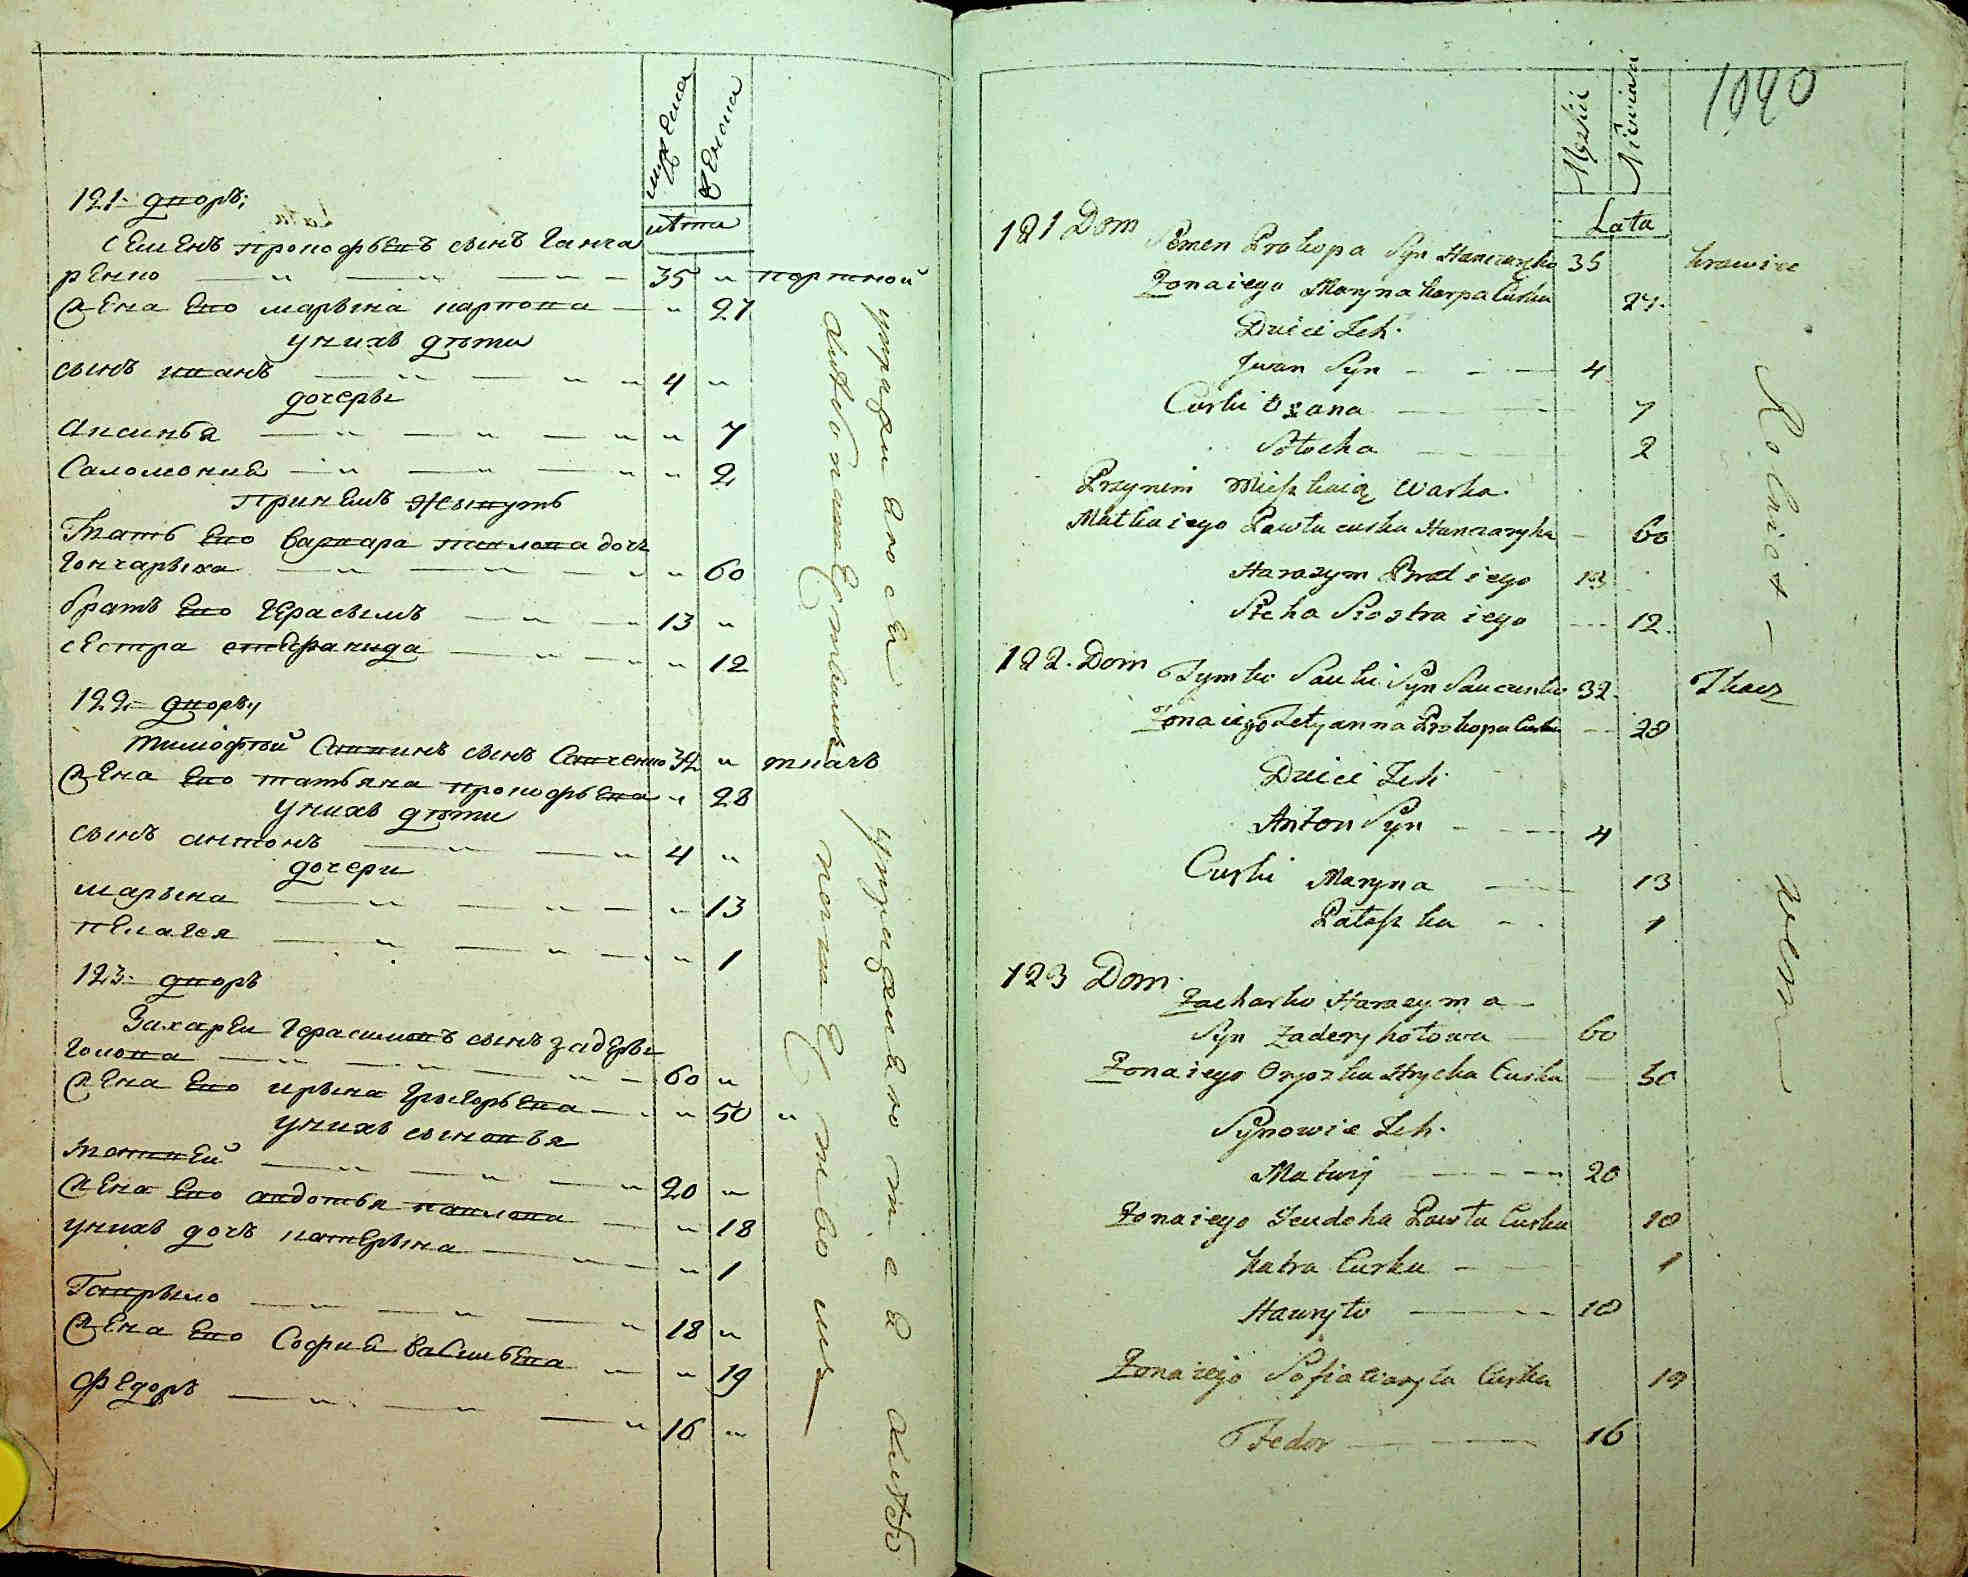 мужеска
женска
лѣта
121 дворъ;
Семенъ Прокофьевъ сынъ Ганча
ренко 35 „ портной
Жена Ево Марьина Карпова „ 27
у нихъ дѣти
сынъ иванъ 4 „
дочеры
Аксинья „ 7
Саломония „ 2
при немъ живутъ
Мать Ево Варвара павлова дочь
Гончарыха „ 60
братъ Ево Герасымъ 13 „
сестра стефанида „ 12
122 дворъ,,
Тимофѣй Саввинъ сынъ Савченко 32 „ ткачъ
Жена Ево татьяна прокофьева „ 28
у нихъ дѣти
сынъ антонъ 4 „
дочери
марьина „ 13
пелагея „ 1
123 дворъ
Захареи Герасимовъ сынъ задеры
голова 60 „
Жена Ево ирына Григорьева „ 50 „
у нихъ сыновья
Матвей 20 „
Жена Ево авдотья павлова „ 18
у нихъ дочъ катерына „ 1
Гаврыло 18 „
Жена Ево София васильева „ 19
Федоръ 16 „
упражняюся
упражняются
1090
Męzkii
Niewia
Lata
121 Dom Semen Prokopa Syn Hanczarenko 35 krawiec
Zona iego Maryna Karpa Curka 27.
Dzieci Ich.
Iwan Syn 4
Curki Oxana 7
Sołocha 2
Przynim Mieszkaią Warka
Matka iego Pawła curka Hanczarycha 60
Harasym Brat iego 13
Steha Siostra iego 12.
122. Dom Tymko Sawki Syn Sawczenko 32. Tkacz
Zona iego Tetyanna Prokopa Curka 28
Dzieci Ich.
Anton Syn 4
Curki Maryna 13
Palaszka 1
123 Dom
Zacharko Harazyma
Syn Zaderyhołowa 60
Zona iego Oryszka Hrycka Curka 50
Synowie Ich.
Matwij 20
Zona iego Jeudoha Pawła Curka 18
Katra Curka 1
Hawryło 18
Zona iego Sofia Wasyla Curka 19
Fedor 16
Rolnict-
wem